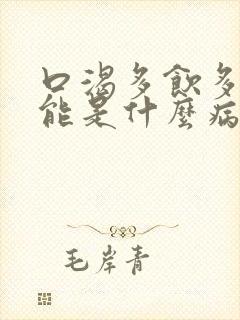 口渴多飲多
能是什麼病
毛岸青